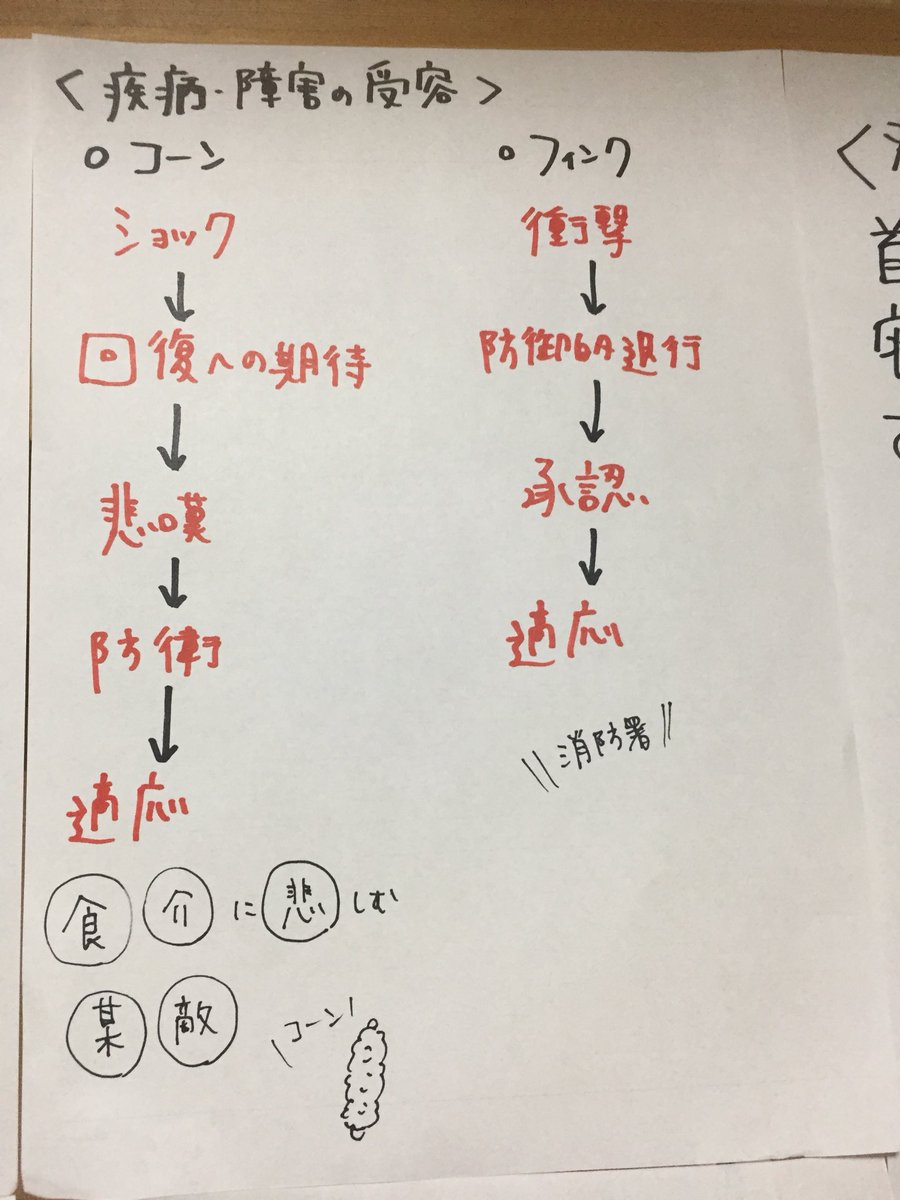 <疾病・障害の受容>
○コーン
ショック
↓
回復への期待
↓
悲嘆
↓
防衛
↓
適応
食介に悲しむ
某敵
\コーン/
○フィンク
衝撃
↓
防御的退行
↓
承認
↓
適応
\\消防署//